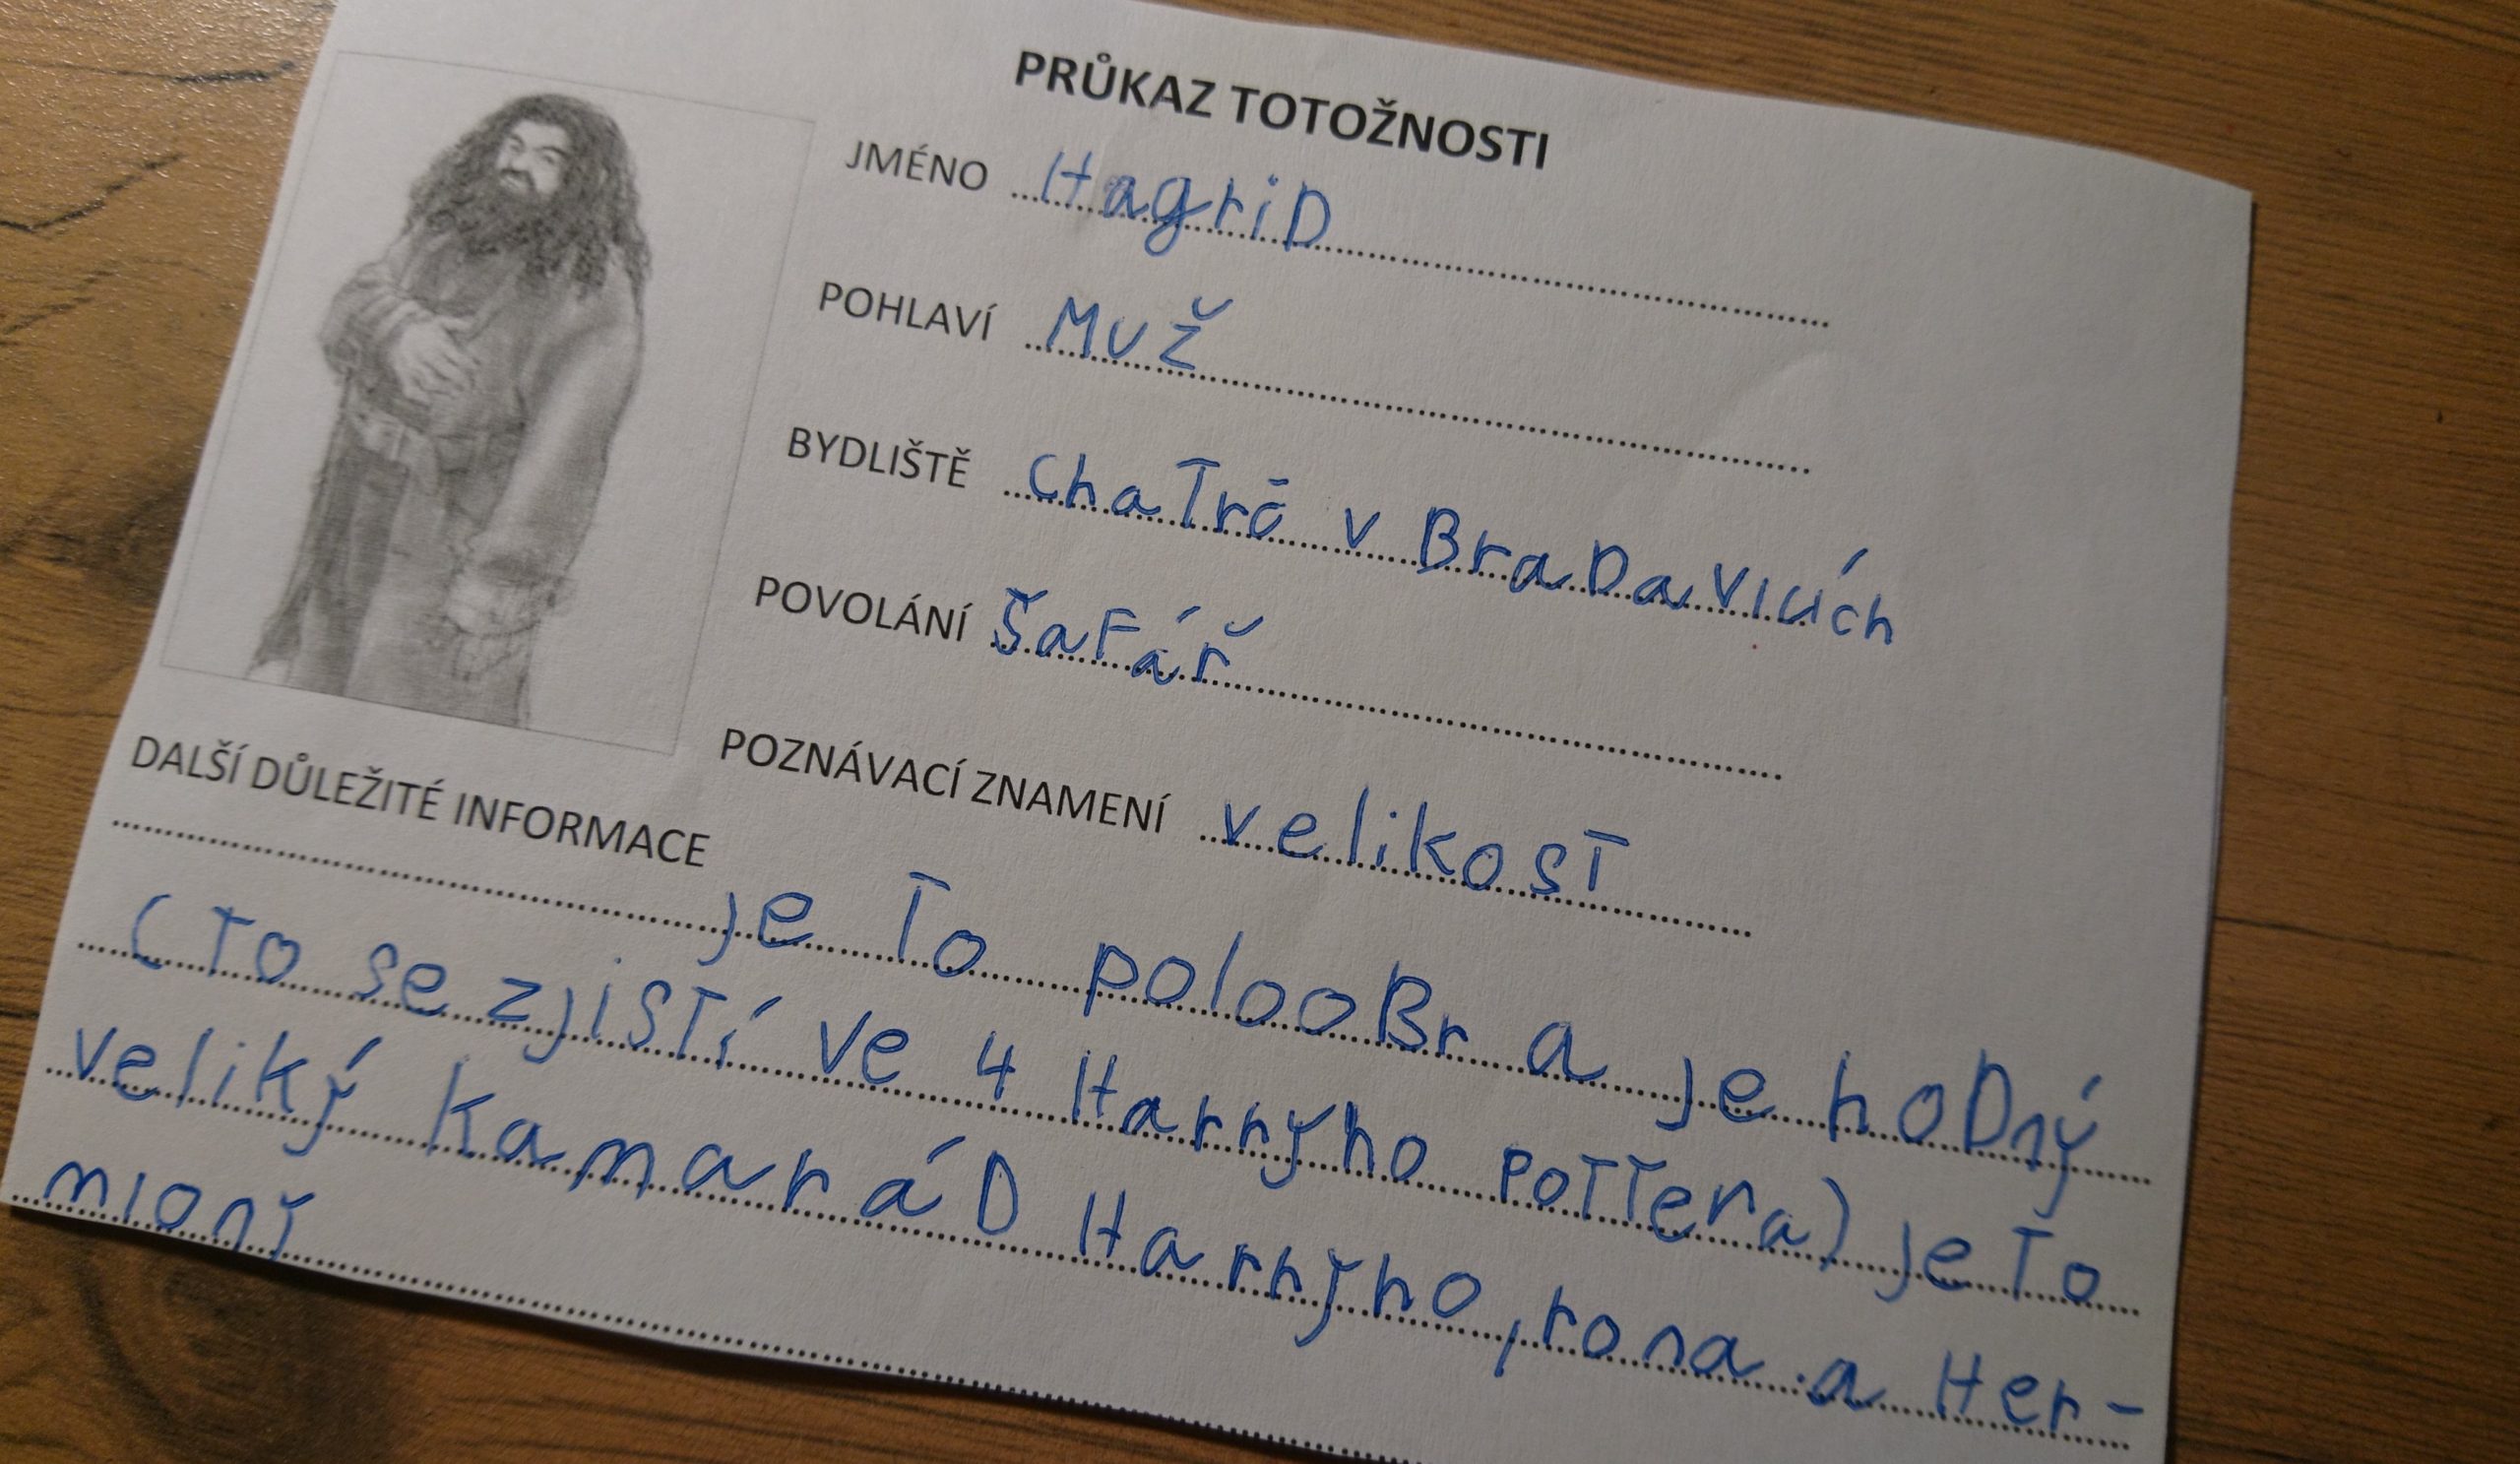 PRŮKAZ TOTOŽNOSTI
JMÉNO HagriD
POHLAVÍ Muž
BYDLIŠTĚ ChaTrč v BraDavicích
POVOLÁNÍ ŠaFář
POZNÁVACÍ ZNAMENÍ velikosT
DALŠÍ DŮLEŽITÉ INFORMACE
je To polooBr a je hoDný
(To se zjisTí ve 4 Harryho poTTera) je To
veliký kamaráD Harryho, rona a Her-
miony